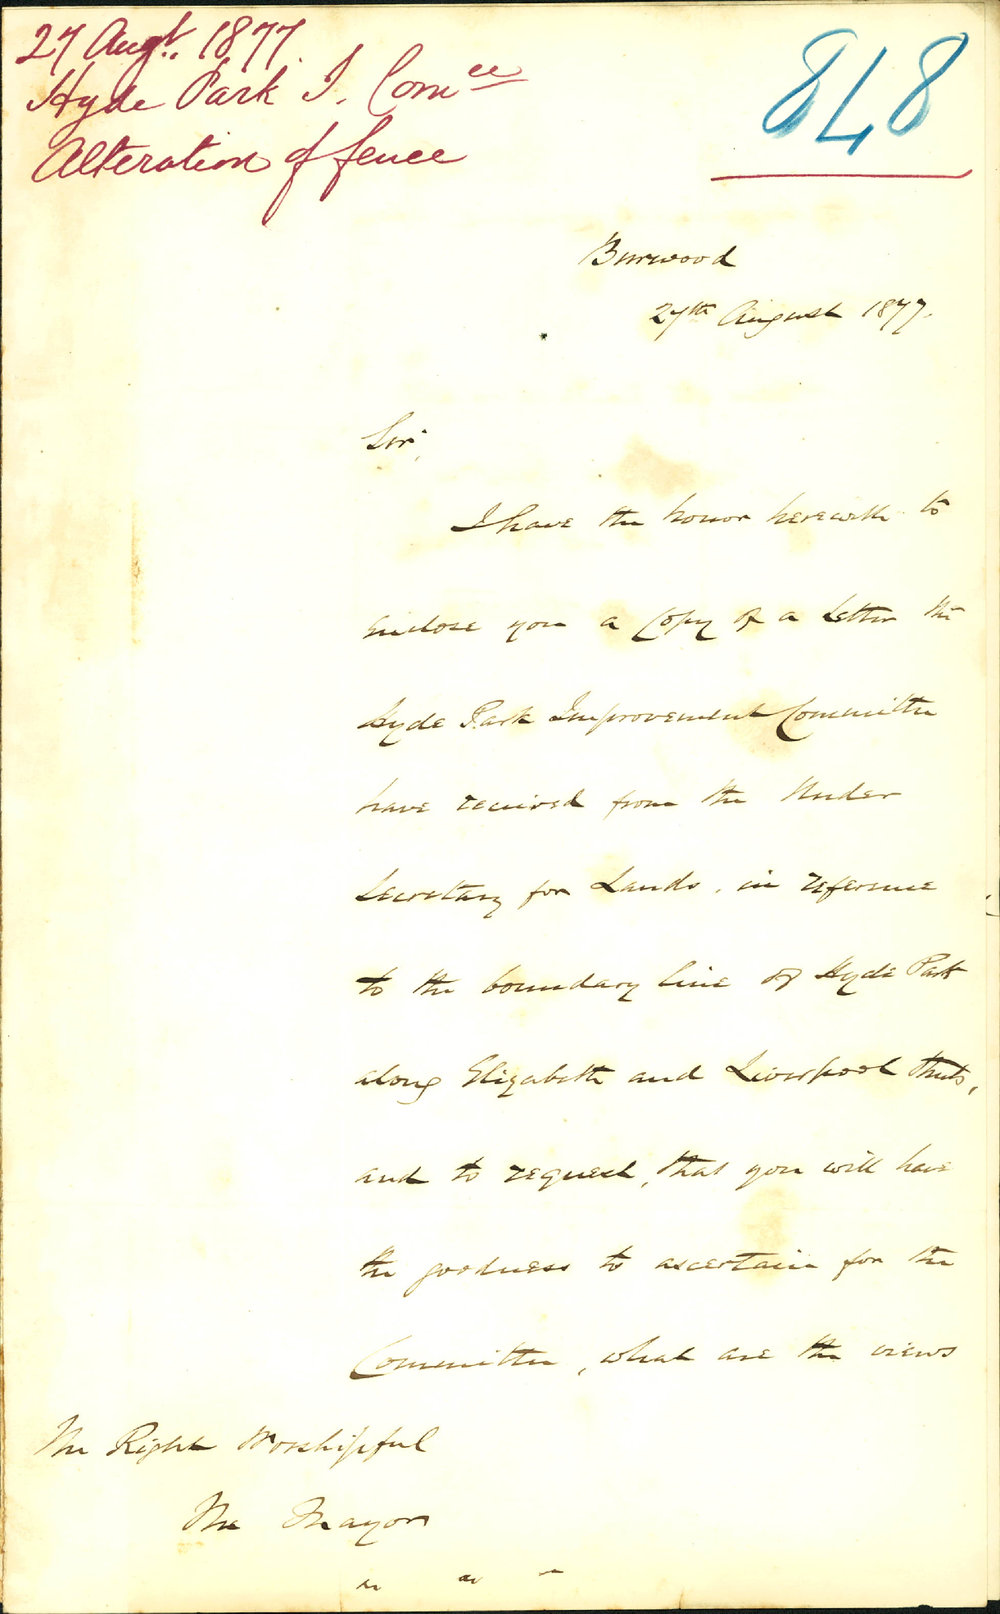 27 Augt. 1877.
Hyde Park I. Comee
Alteration of fence
848
Burwood
27th August 1877.
Sir,
I have the honor herewith to
enclose you a Copy of a Letter the
Hyde Park Improvement Committee
have received from the Under
Secretary for Lands, in reference
to the boundary line of Hyde Park
along Elizabeth and Liverpool Streets,
and to request, that you will have
the goodness to ascertain for the
Committee, what are the views
The Right Worshipful
The Mayor